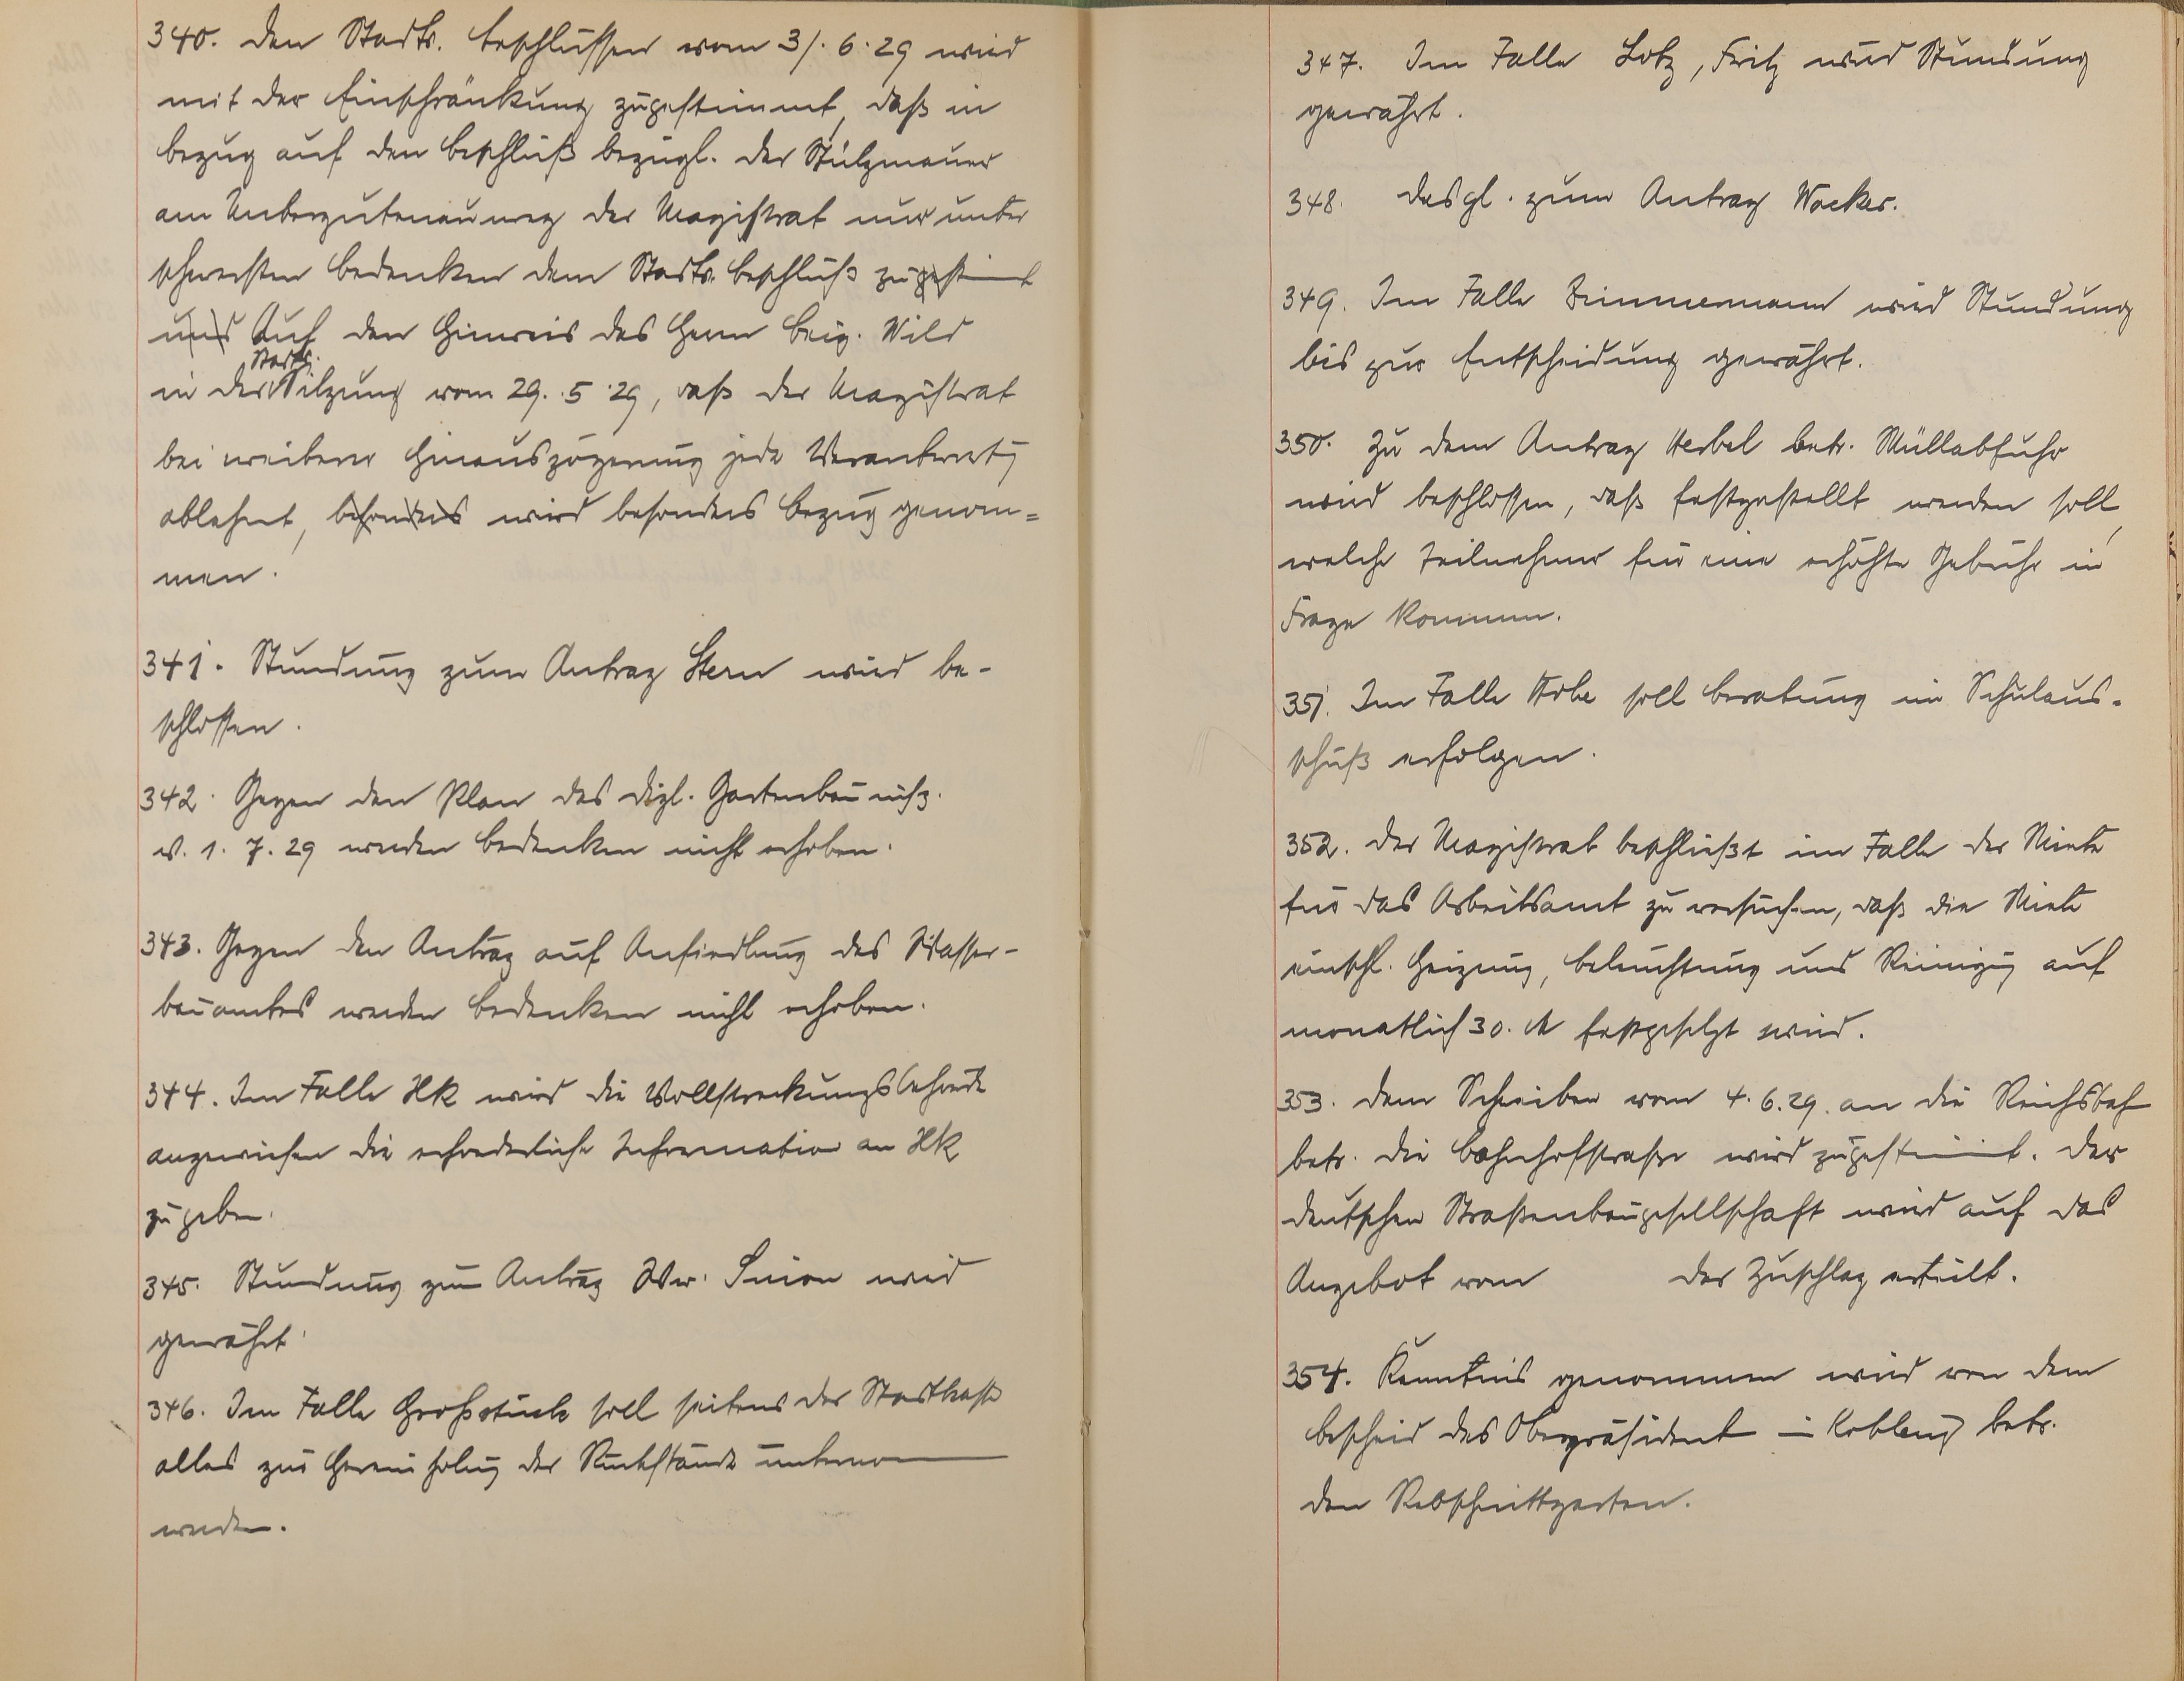 340. Den Stadtv. Beschlüssen vom 31. 6. 29 wird
mit der Einschränkung zugestimmt, daß in
bezug auf den Beschluß bezügl. der Stützmauer
am der Magistrat nur unter
schwersten Bedenken dem Stadtv. Beschluß zugestimmt
und Auf den Hinweis des Herrn Beig. Wild
in der Stadtv. Sitzung vom 29. 5. 29, daß der Magistrat
bei weiterer Hinauszögerung jede Verantwortg
ablehnt, besonders wird besonders Bezug genom=
men.
341. Stundung zum Antrag Stern wird be-
schlossen.
342. Gegen den Plan des Dipl. Gartenbau
v. 1. 7. 29 werden Bedenken nicht erhoben.
343. Gegen den Antrag auf Ansiedlung des Wasser-
bauamtes werden Bedenken nicht erhoben.
344. Im Falle Hk wird die Vollstreckungsbehörde
angewiesen die erforderliche Information an Hk
zu geben.
345. Stundung zum Antrag Ww. Simon wird
gewährt.
346. Im Falle Großstück soll seitens der Stadtkasse
alles zur Hereinholung der Rückstände unternommen
werden.
347. Im Falle Lotz, Fritz wird Stundung
gewährt.
348. Desgl. zum Antrag Wocker.
349. Im Falle Zimmermann wird Stundung
bis zur Entscheidung gewährt.
350. Zu dem Antrag Herbel betr. Müllabfuhr
wird beschlossen, daß festgestellt werden soll,
welche Teilnehmer für eine erhöhte Gebühr in
Frage kommen.
351. Im Falle soll Beratung im Schulaus-
schuß erfolgen.
352. Der Magistrat beschließt im Falle der Miete
für das Arbeitsamt zu versuchen, daß die Miete
einschl. Heizung, Beleuchtung und Reinigung auf
monatlich 30. M festgesetzt wird.
353. Dem Schreiben vom 4. 6. 29. an die Reichsbah
betr. die Bahnhofstraße wird zugestimmt. Der
deutschen Straßenbaugesellschaft wird auf das
Angebot vom der Zuschlag erteilt.
354. Kenntnis genommen wird von dem
Bescheid des Oberpräsident in Koblenz betr.
den Rebschnittgarten.